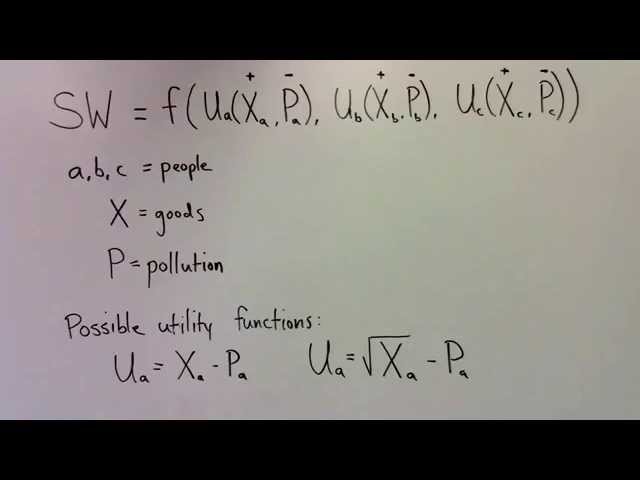 SW = f(Ua(X⁺a, P⁻a), Ub(X⁺b, P⁻b), Uc(X⁺c, P⁻c))
a, b, c = people
X = goods
P = pollution
Possible utility functions:
Ua = Xa - Pa    Ua = √Xa - Pa